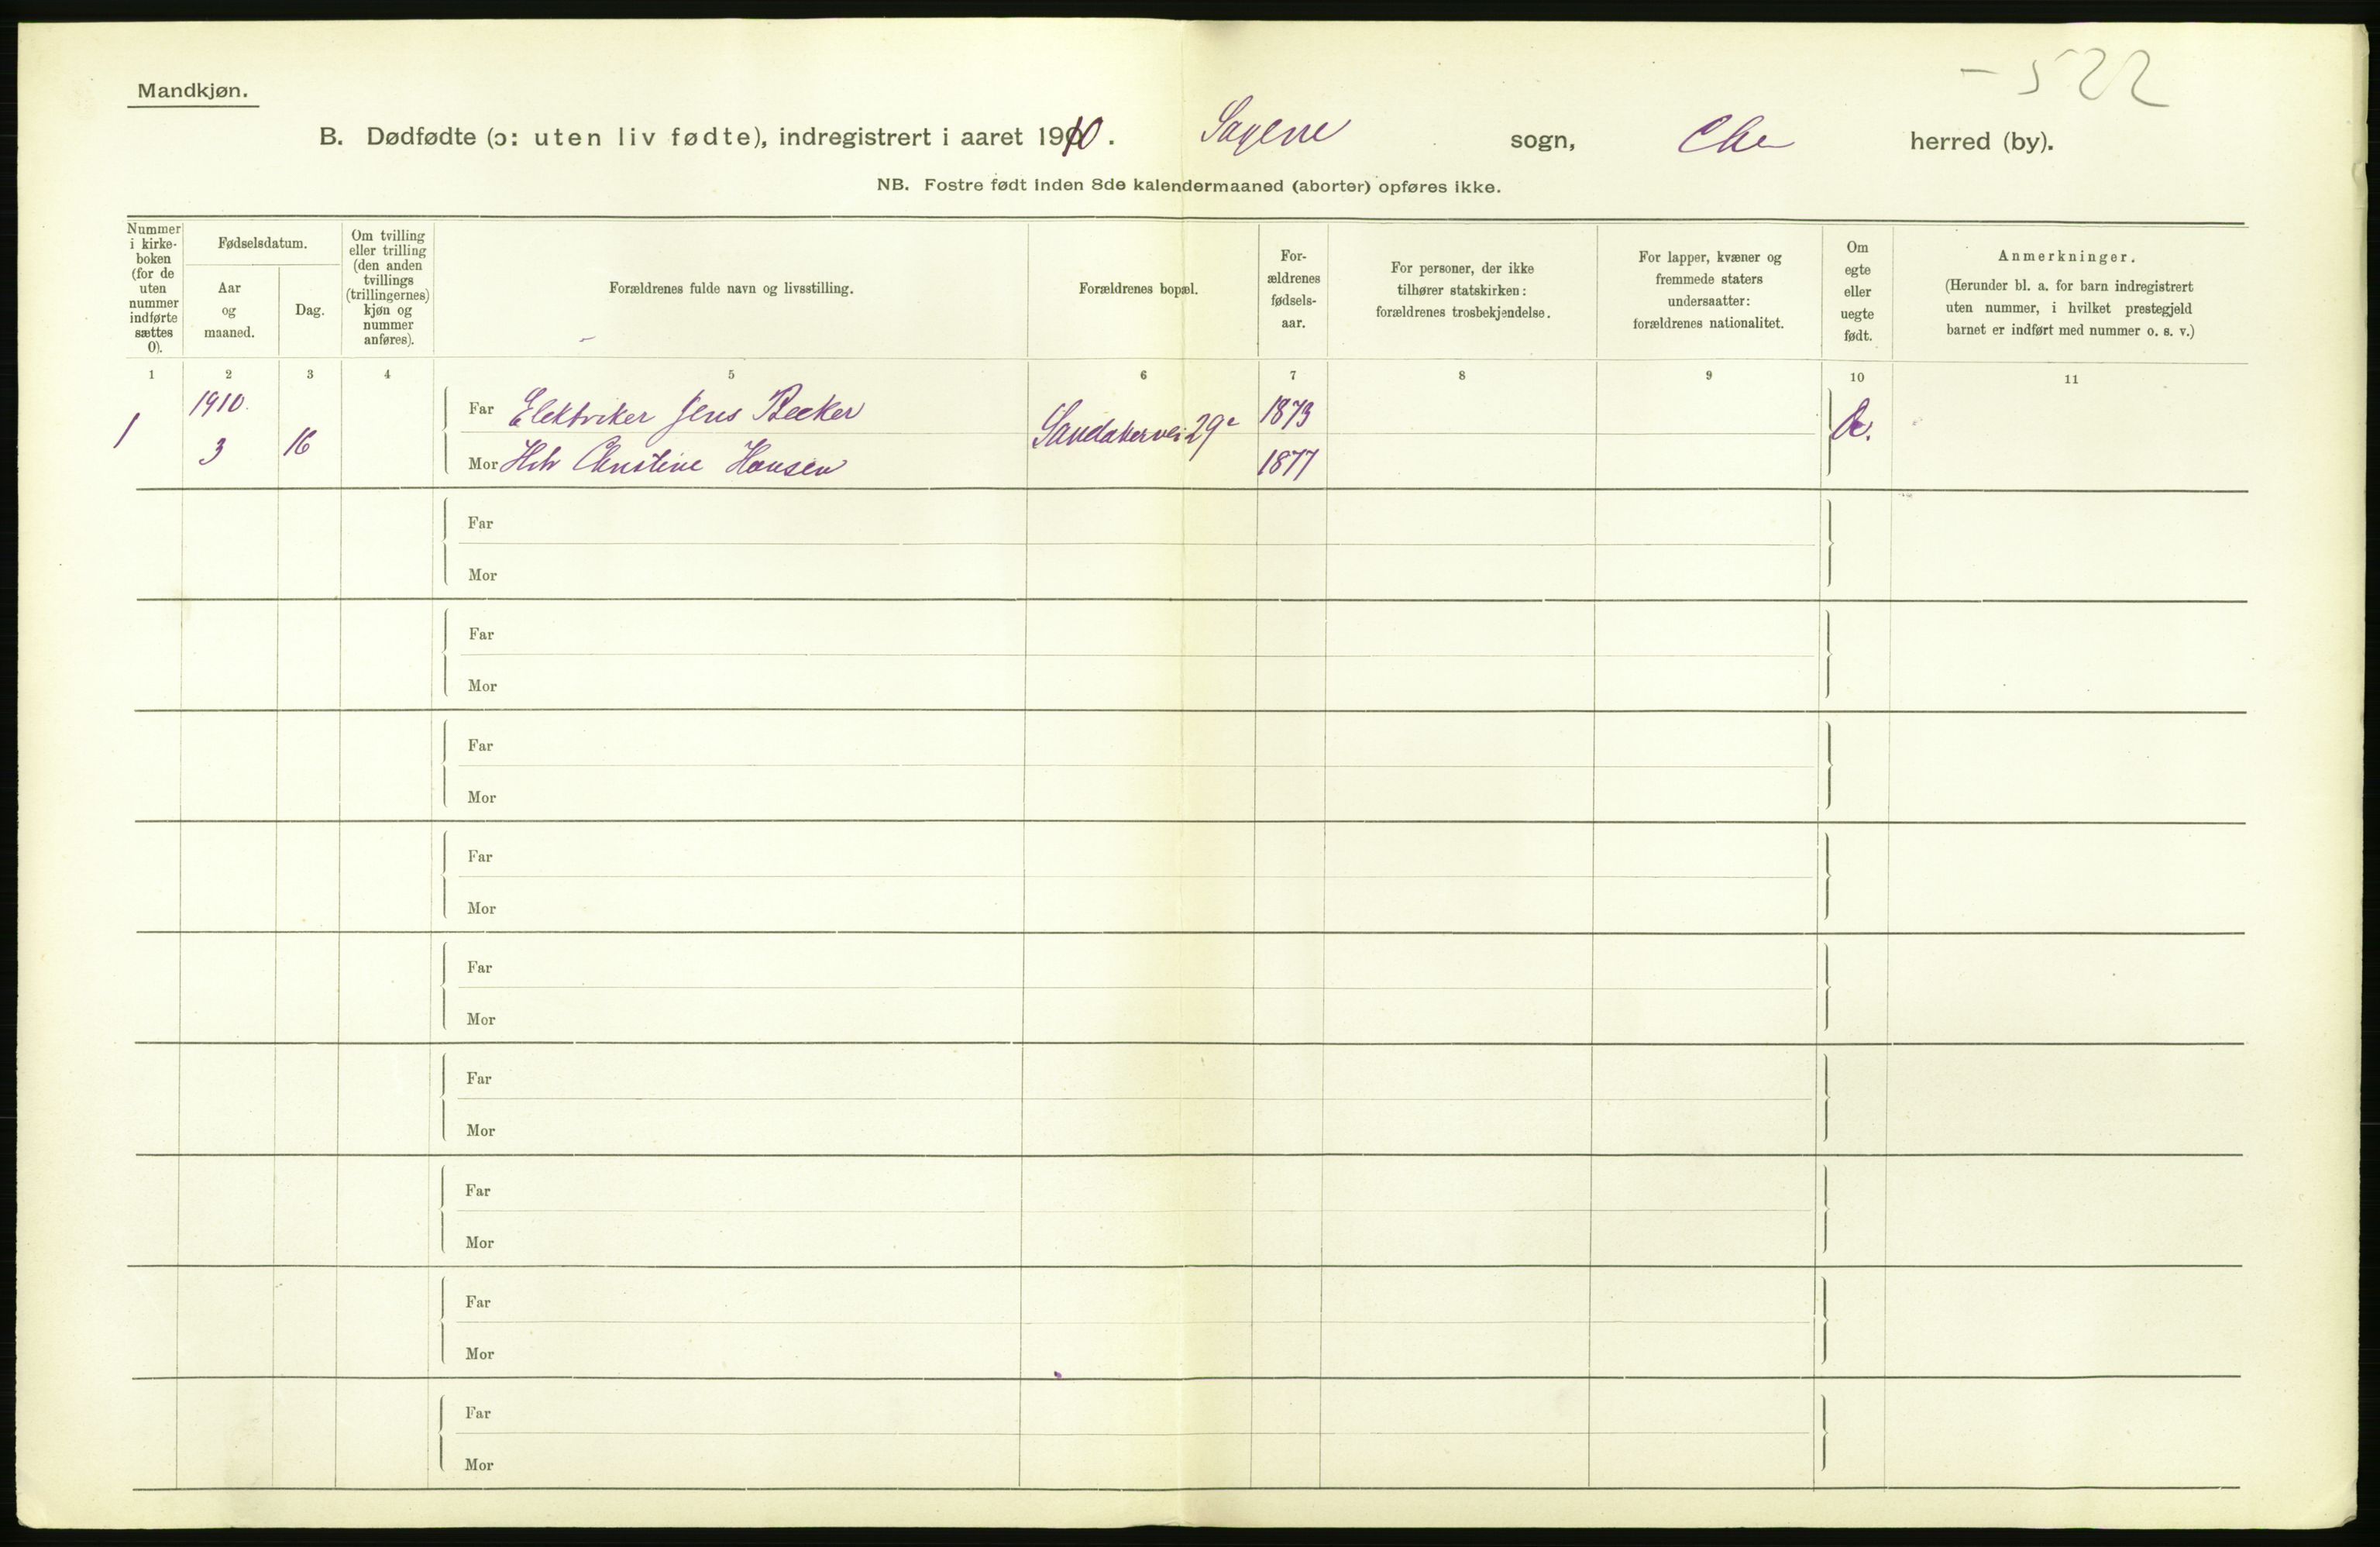 - 522
Mandkjøn.
B. Dødfødte (ɔ: uten liv fødte), indregistrert i aaret 1910. Sagene sogn, Chr herred (by).
NB. Fostre født inden 8de kalendermaaned (aborter) opføres ikke.
Nummer i kirke-boken (for de uten nummer indførte sættes 0).
Fødselsdatum.
Aar og maaned.
Dag.
Om tvilling eller trilling (den anden tvillings (trillingernes) kjøn og nummer anføres).
Forældrenes fulde navn og livsstilling.
Forældrenes bopæl.
For-ældrenes fødsels-aar.
For personer, der ikke tilhører statskirken: forældrenes trosbekjendelse.
For lapper, kvæner og fremmede staters undersaatter: forældrenes nationalitet.
Om egte eller uegte født.
Anmerkninger.
(Herunder bl. a. for barn indregistrert uten nummer, i hvilket prestegjeld barnet er indført med nummer o. s. v.)
1 2 3 4 5 6 7 8 9 10 11
1 1910. 3 16
Far Elektriker Jens Becker Sandakervei 29 1873
Mor Hstr Christine Hansen 1877
Far
Mor
Far
Mor
Far
Mor
Far
Mor
Far
Mor
Far
Mor
Far
Mor
Far
Mor
Far
Mor